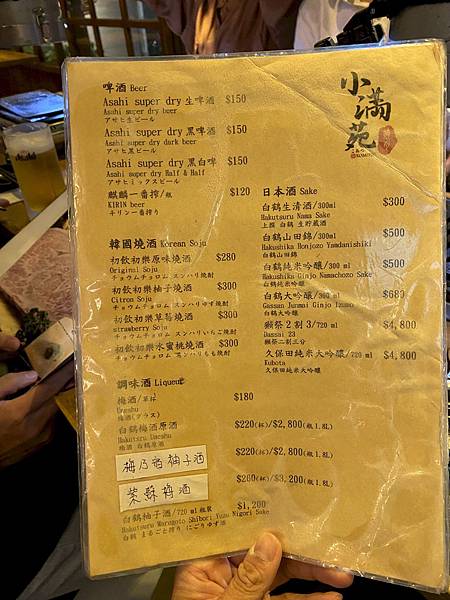 小満苑
啤酒 Beer
Asahi super dry 生啤酒 $150
Asahi super dry beer
アサヒ生ビール
Asahi super dry 黑啤酒 $150
Asahi super dry dark beer
アサヒ黒ビール
Asahi super dry 黑白啤 $150
Asahi super dry Half & Half
アサヒミックスビール
麒麟一番搾/瓶 $120
KIRIN beer
キリン一番搾り
韓國燒酒 Korean Soju
初飲初樂原味燒酒 $280
Original Soju
チョウムチョロム スンハリ焼酎
初飲初樂柚子燒酒 $300
Citron Soju
チョウムチョロム スンハリゆず焼酎
初飲初樂草莓燒酒 $300
strawberry Soju
チョウムチョロム スンハリいちご焼酎
初飲初樂水蜜桃燒酒 $300
チョウムチョロム スンハリもも焼酎
調味酒 Liqueur
梅酒/單杯 $180
Umeshu
梅酒(グラス)
白鶴梅酒原酒 $220(杯)/$2,800(瓶1.8L)
Hakutsuru Umeshu
梅酒 白鶴原酒
梅乃宿柚子酒 $220(杯)/$2,800(瓶1.8L)
紫蘇梅酒 $260(杯)/$3,200(瓶1.8L)
白鶴柚子酒/720 ml 瓶裝 $1,200
Hakutsuru Marugoto Shibori Yuzu Nigori Sake
白鶴 まるごと搾り にごりゆず酒
日本酒 Sake
白鶴生清酒/300ml $300
Hakutsuru Nama Sake
上撰 白鶴 生貯蔵酒
白鶴山田錦/300ml $500
Hakushika Honjozo Yamadanishiki
白鶴山田錦
白鶴純米吟釀/300 ml $500
Hakushika Ginjo Namachozo Sake
白鶴純米吟醸
白鶴大吟釀/300 ml $680
Gassan Junmai Ginjo Izumo
白鶴大吟醸
獺祭2割3/720 ml $4,800
Dassai 23
獺祭二割三分
久保田純米大吟釀/720 ml $4,800
Kubota
久保田純米大吟醸
Asahi